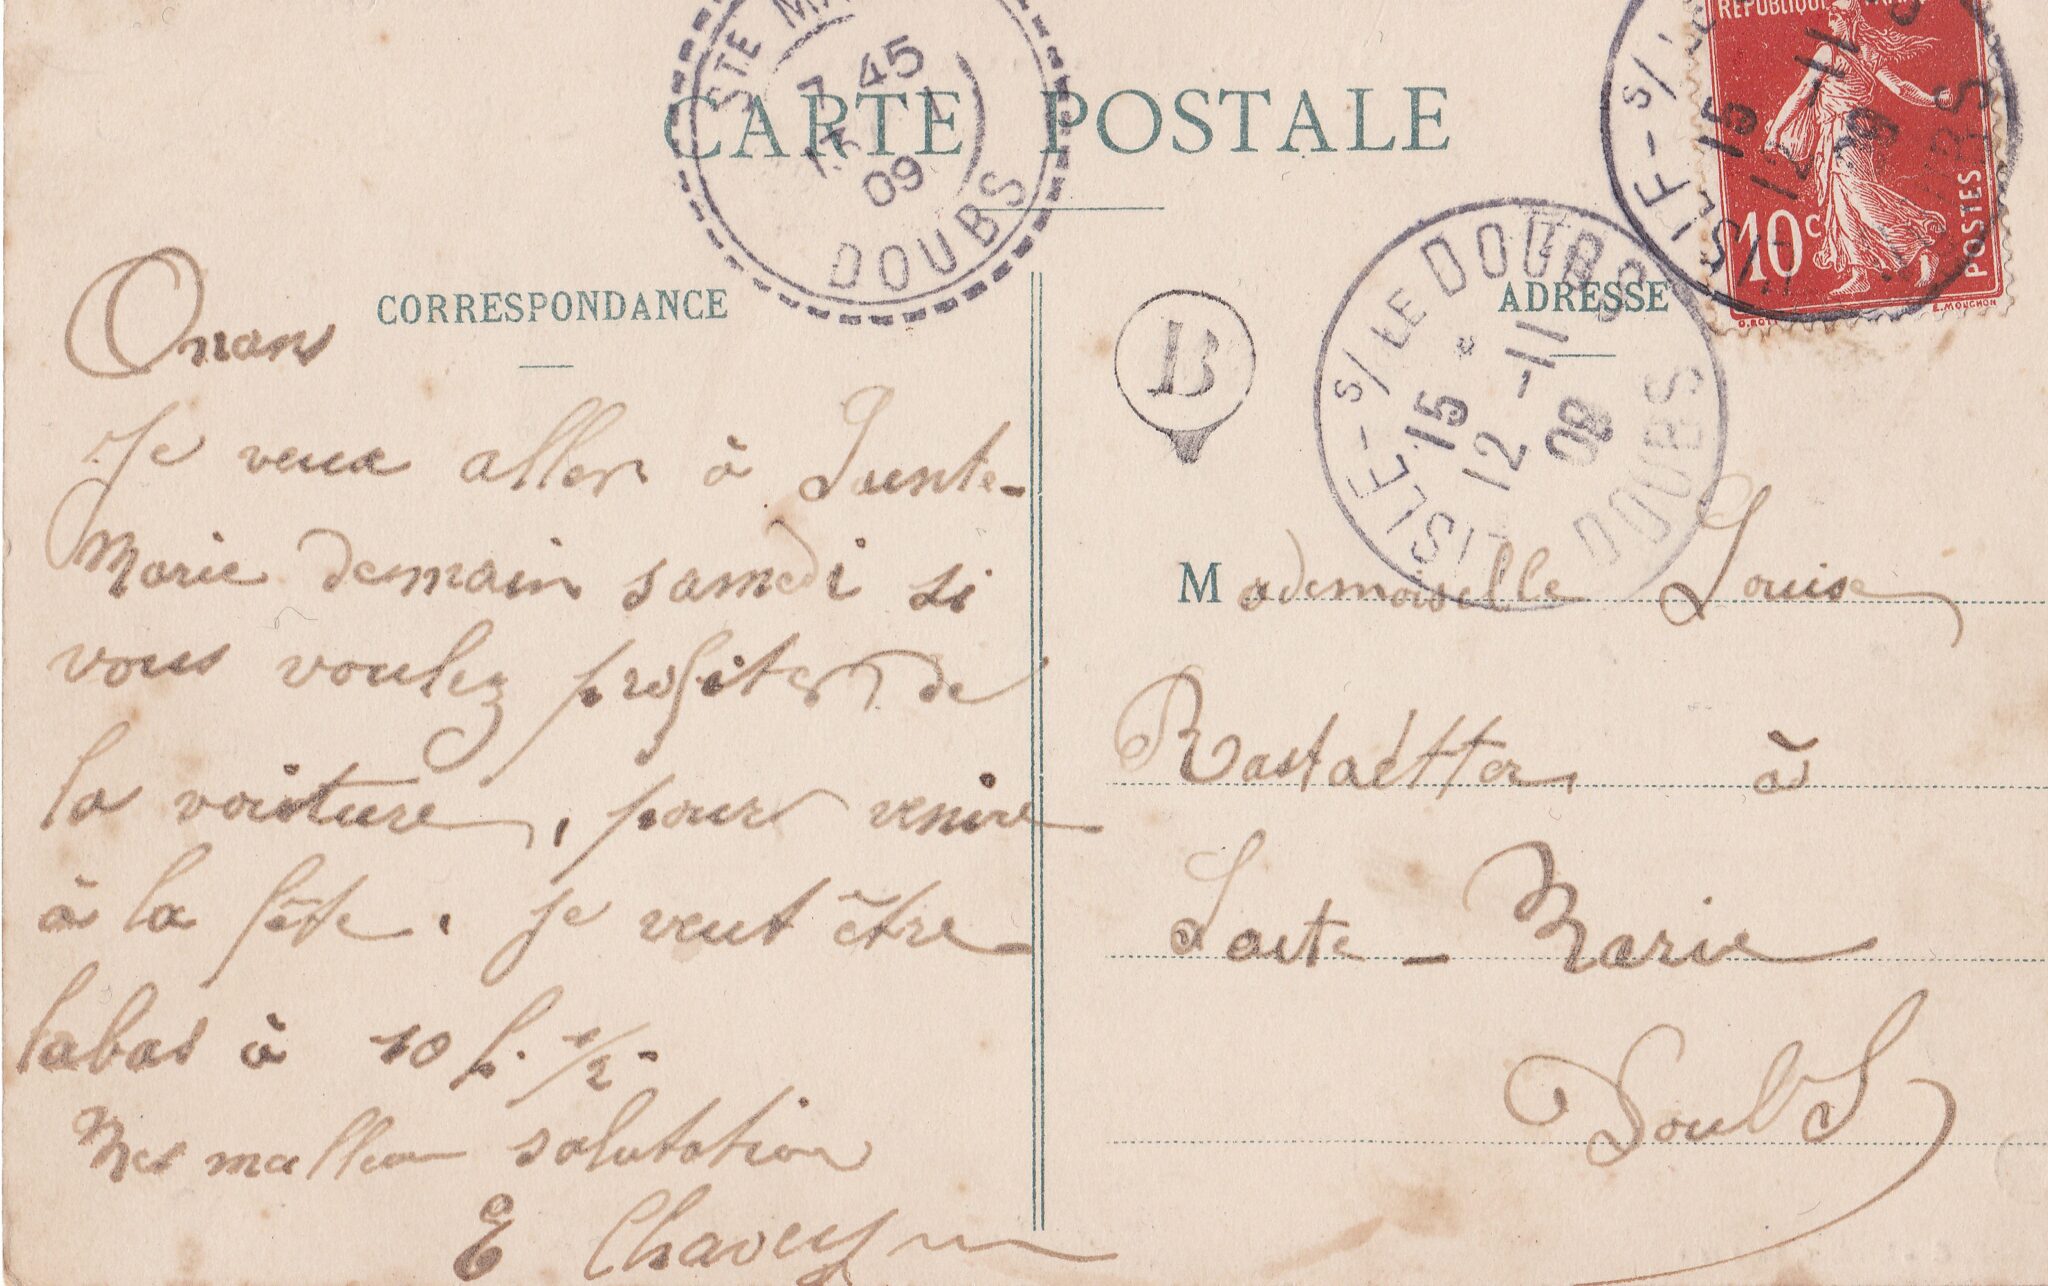 STE MA
7 45
13
09
DOUBS
CARTE POSTALE
REPUBLIQUE
10 c
POSTES
E. MOUCHON
L'ISLE-S/
15
12 -11
09
DOUBS
CORRESPONDANCE
ADRESSE
B
L'ISLE-S/LE DOUBS
15 *
12 -11
09
DOUBS
Onans
Je veux aller à Sainte-
Marie demain samedi si
vous voulez profiter de
la voiture, pour venire
à la fête. Je veut être
labas à 10 h. 1/2.
Mes mellieur salutation
E Chavey
Mademoiselle Louise
Rastaetter à
Saite-Marie
Doubs